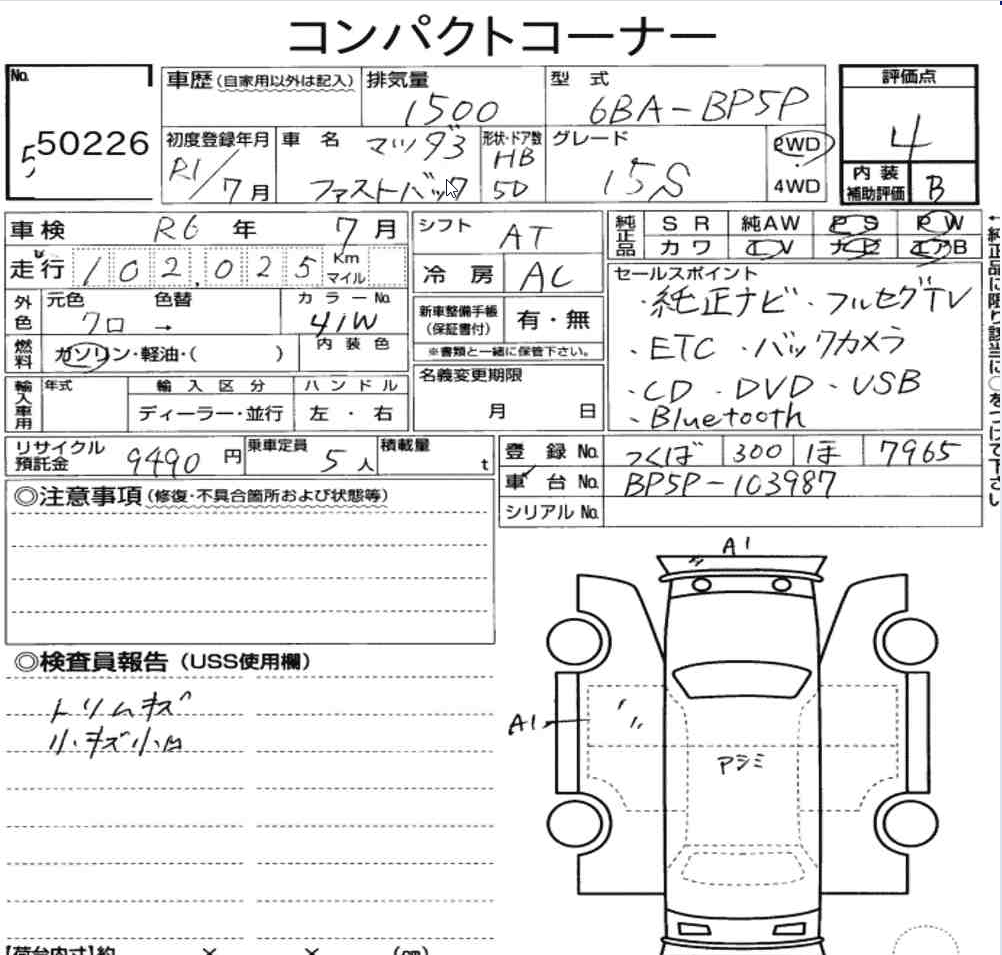 コンパクトコーナー
No.
5, 50226
車歴 (自家用以外は記入)
排気量
1500
型 式
6BA-BP5P
評価点
4
初度登録年月
R1/7月
車 名
マツダ3
ファストバック
形状・ドア数
HB
5D
グレード
15S
2WD
・
4WD
内 装
補助評価
B
車検 R6 年 7 月
シフト AT
純正品
S R 純AW P S P W
カ ワ T V ナビ エアB
走行 102,025 Km
マイル
冷 房 AC
セールスポイント
・純正ナビ・フルセグTV
・ETC ・バックカメラ
・CD ・DVD ・USB
・Bluetooth
外色
元色 色替 カラーNo.
クロ → 41W
新車整備手帳
(保証書付)
有・無
※書類と一緒に保管下さい。
燃料
ガソリン・軽油・( )
内 装 色
名義変更期限
月 日
輸入車用
年式
輸 入 区 分
ハ ン ド ル
ディーラー・並行
左 ・ 右
リサイクル
預託金
9490 円
乗車定員
5 人
積載量
t
登 録 No. つくば 300 ほ 7965
車 台 No. BP5P-103987
シリアル No.
←純正品に限り該当に○をつけて下さい
◎注意事項 (修復・不具合箇所および状態等)
◎検査員報告 (USS使用欄)
トリムキズ
小キズ小凹
A1
A1
アシミ
【荷台内寸】約 × × (cm)